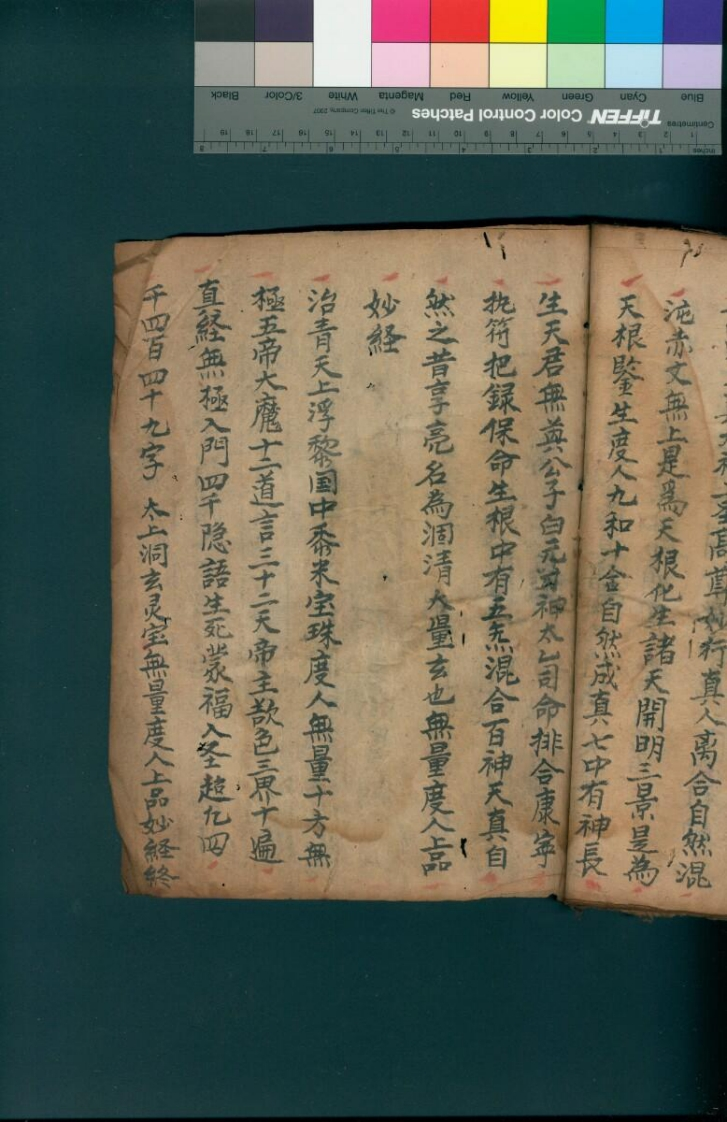 高尊妙行真人离合自然混
沌赤文無上是爲天根化生諸天開明三景是為
天根鑒生度人九和十合自然成真七中有神長
生天君無英公子白元尊神太乙司命排合康寧
执符把録保命生根中有五炁混合百神天真自
然之昔享亮名為洞清大量玄也無量度人上品
妙経
治青天上浮黎国中黍米宝珠度人無量十方無
極五帝大魔十二道言三十二天帝主欲色三界十遍
直経無極入門四千隐語生死蒙福入圣超九四
千四百四十九字 太上洞玄灵宝無量度人上品妙経終
Blue Cyan Green Yellow Red Magenta White 3/Color Black
TIFFEN Color Control Patches © The Tiffen Company, 2007
Centimetres
Inches